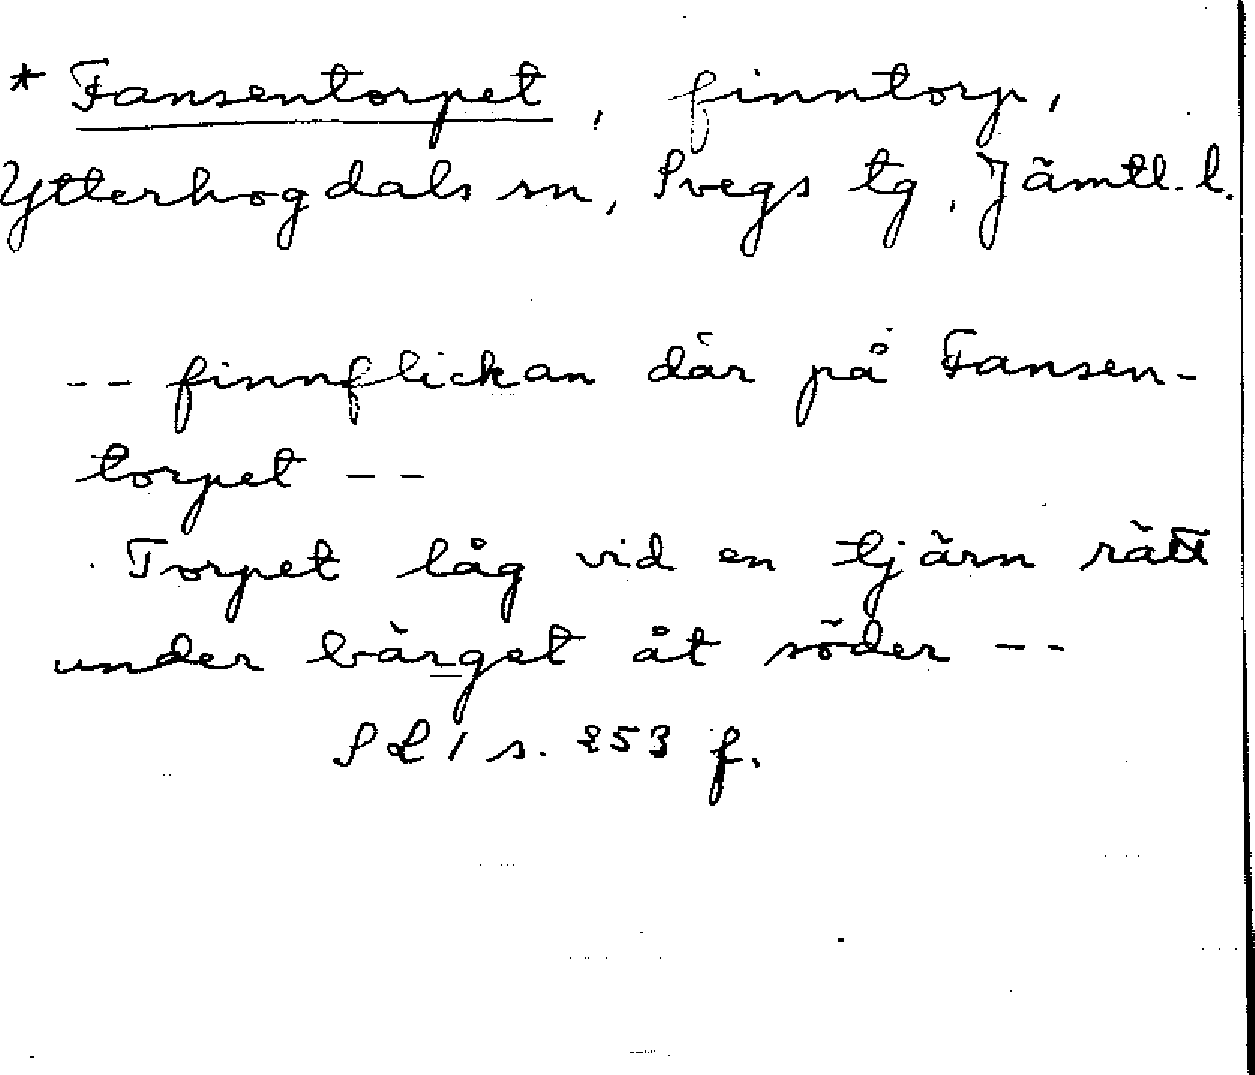 * Fansentorpet, finntorp,
Ytterhogdals sn, Svegs tg, Jämtl. l.
-- finnflickan där på Fansen-
torpet --
Torpet låg vid en tjärn rätt
under bärget åt söder --
SL 1 s. 253 f.